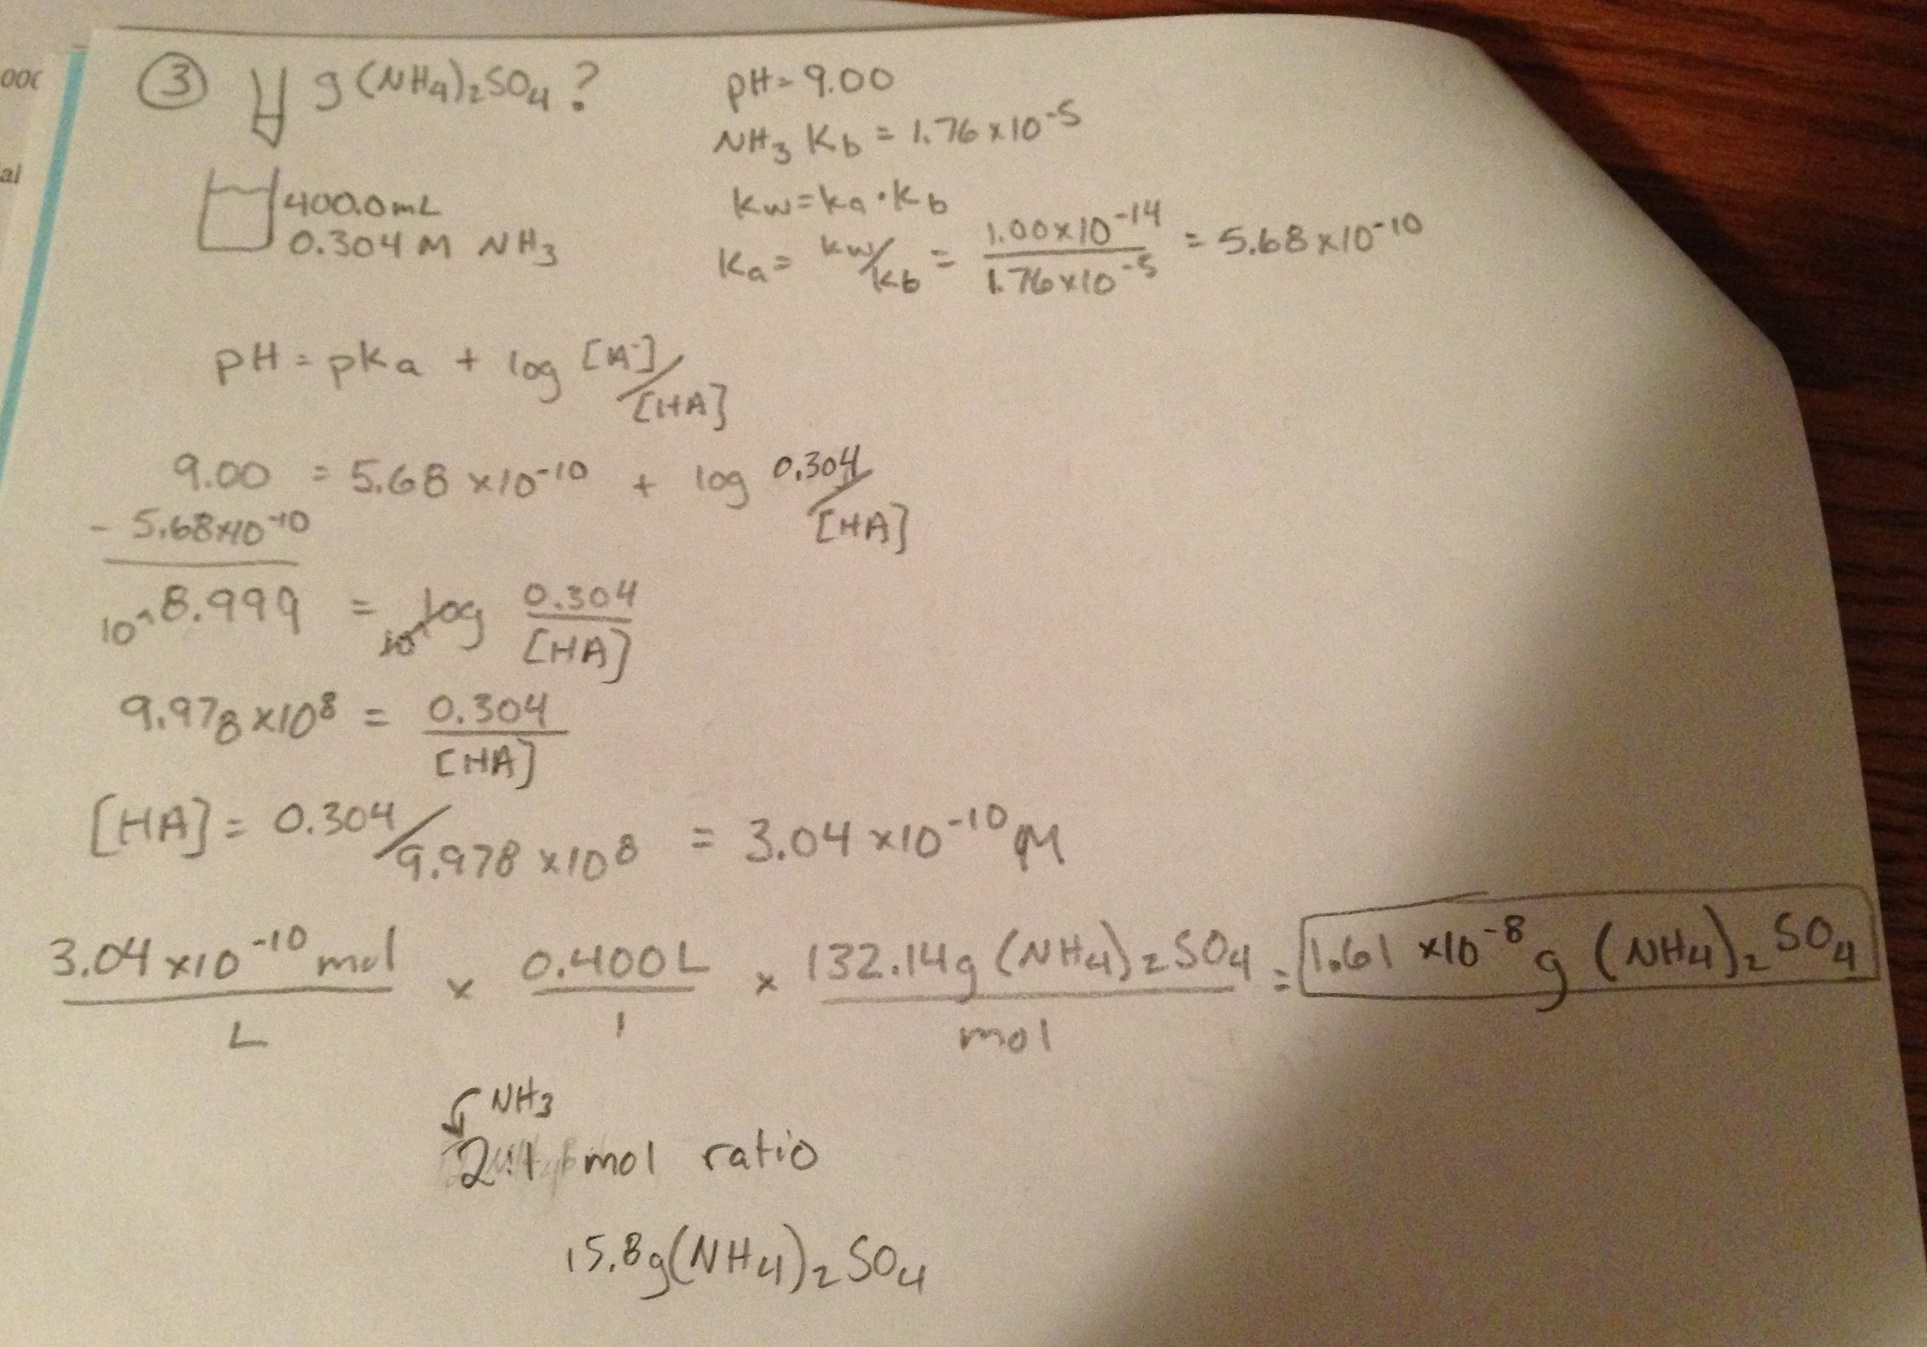 000
al
③ g (NH4)2SO4?
400.0mL
0.304 M NH3
pH = 9.00
NH3 Kb = 1.76 x 10^-5
Kw = Ka · Kb
Ka = Kw/Kb = 1.00x10^-14 / 1.76x10^-5 = 5.68 x 10^-10
pH = pKa + log [A^-]/[HA]
9.00 = 5.68 x10^-10 + log 0.304/[HA]
- 5.68x10^-10
10^8.999 = 10^log 0.304/[HA]
9.978 x10^8 = 0.304/[HA]
[HA] = 0.304/9.978 x10^8 = 3.04 x10^-10 M
3.04 x10^-10 mol/L x 0.400L/1 x 132.14g (NH4)2SO4/mol = 1.61 x10^-8 g (NH4)2SO4
NH3
2:1 mol ratio
15.8g(NH4)2SO4